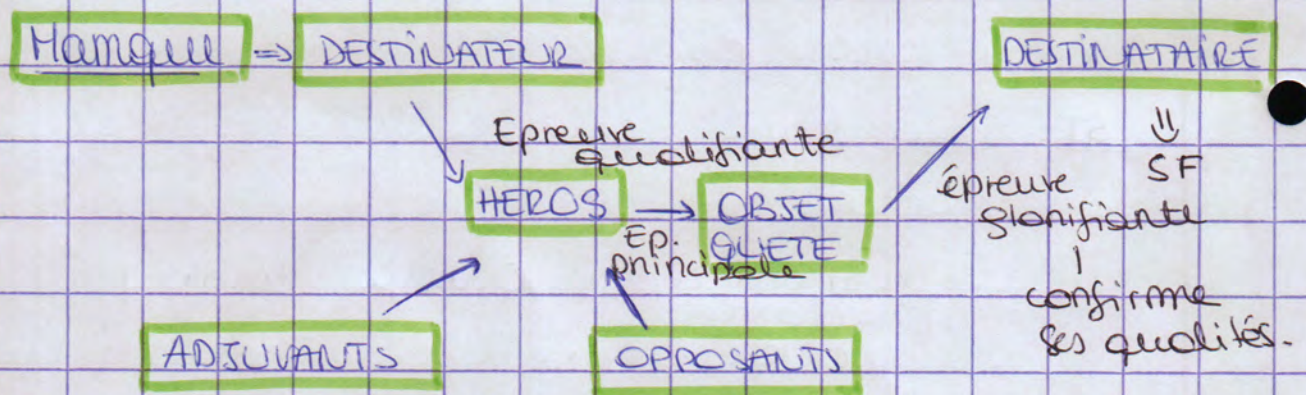 Manque => DESTINATEUR
DESTINATAIRE
⇓
SF
Epreuve
qualifiante
HEROS → OBJET
QUETE
Ep.
principale
épreuve
glorifiante
|
confirme
ses qualités.
ADJUVANTS
OPPOSANTS